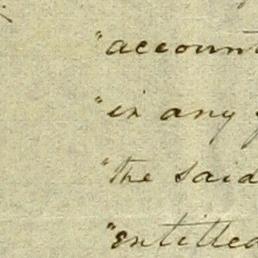 "account
"in any
"the said
"entitled